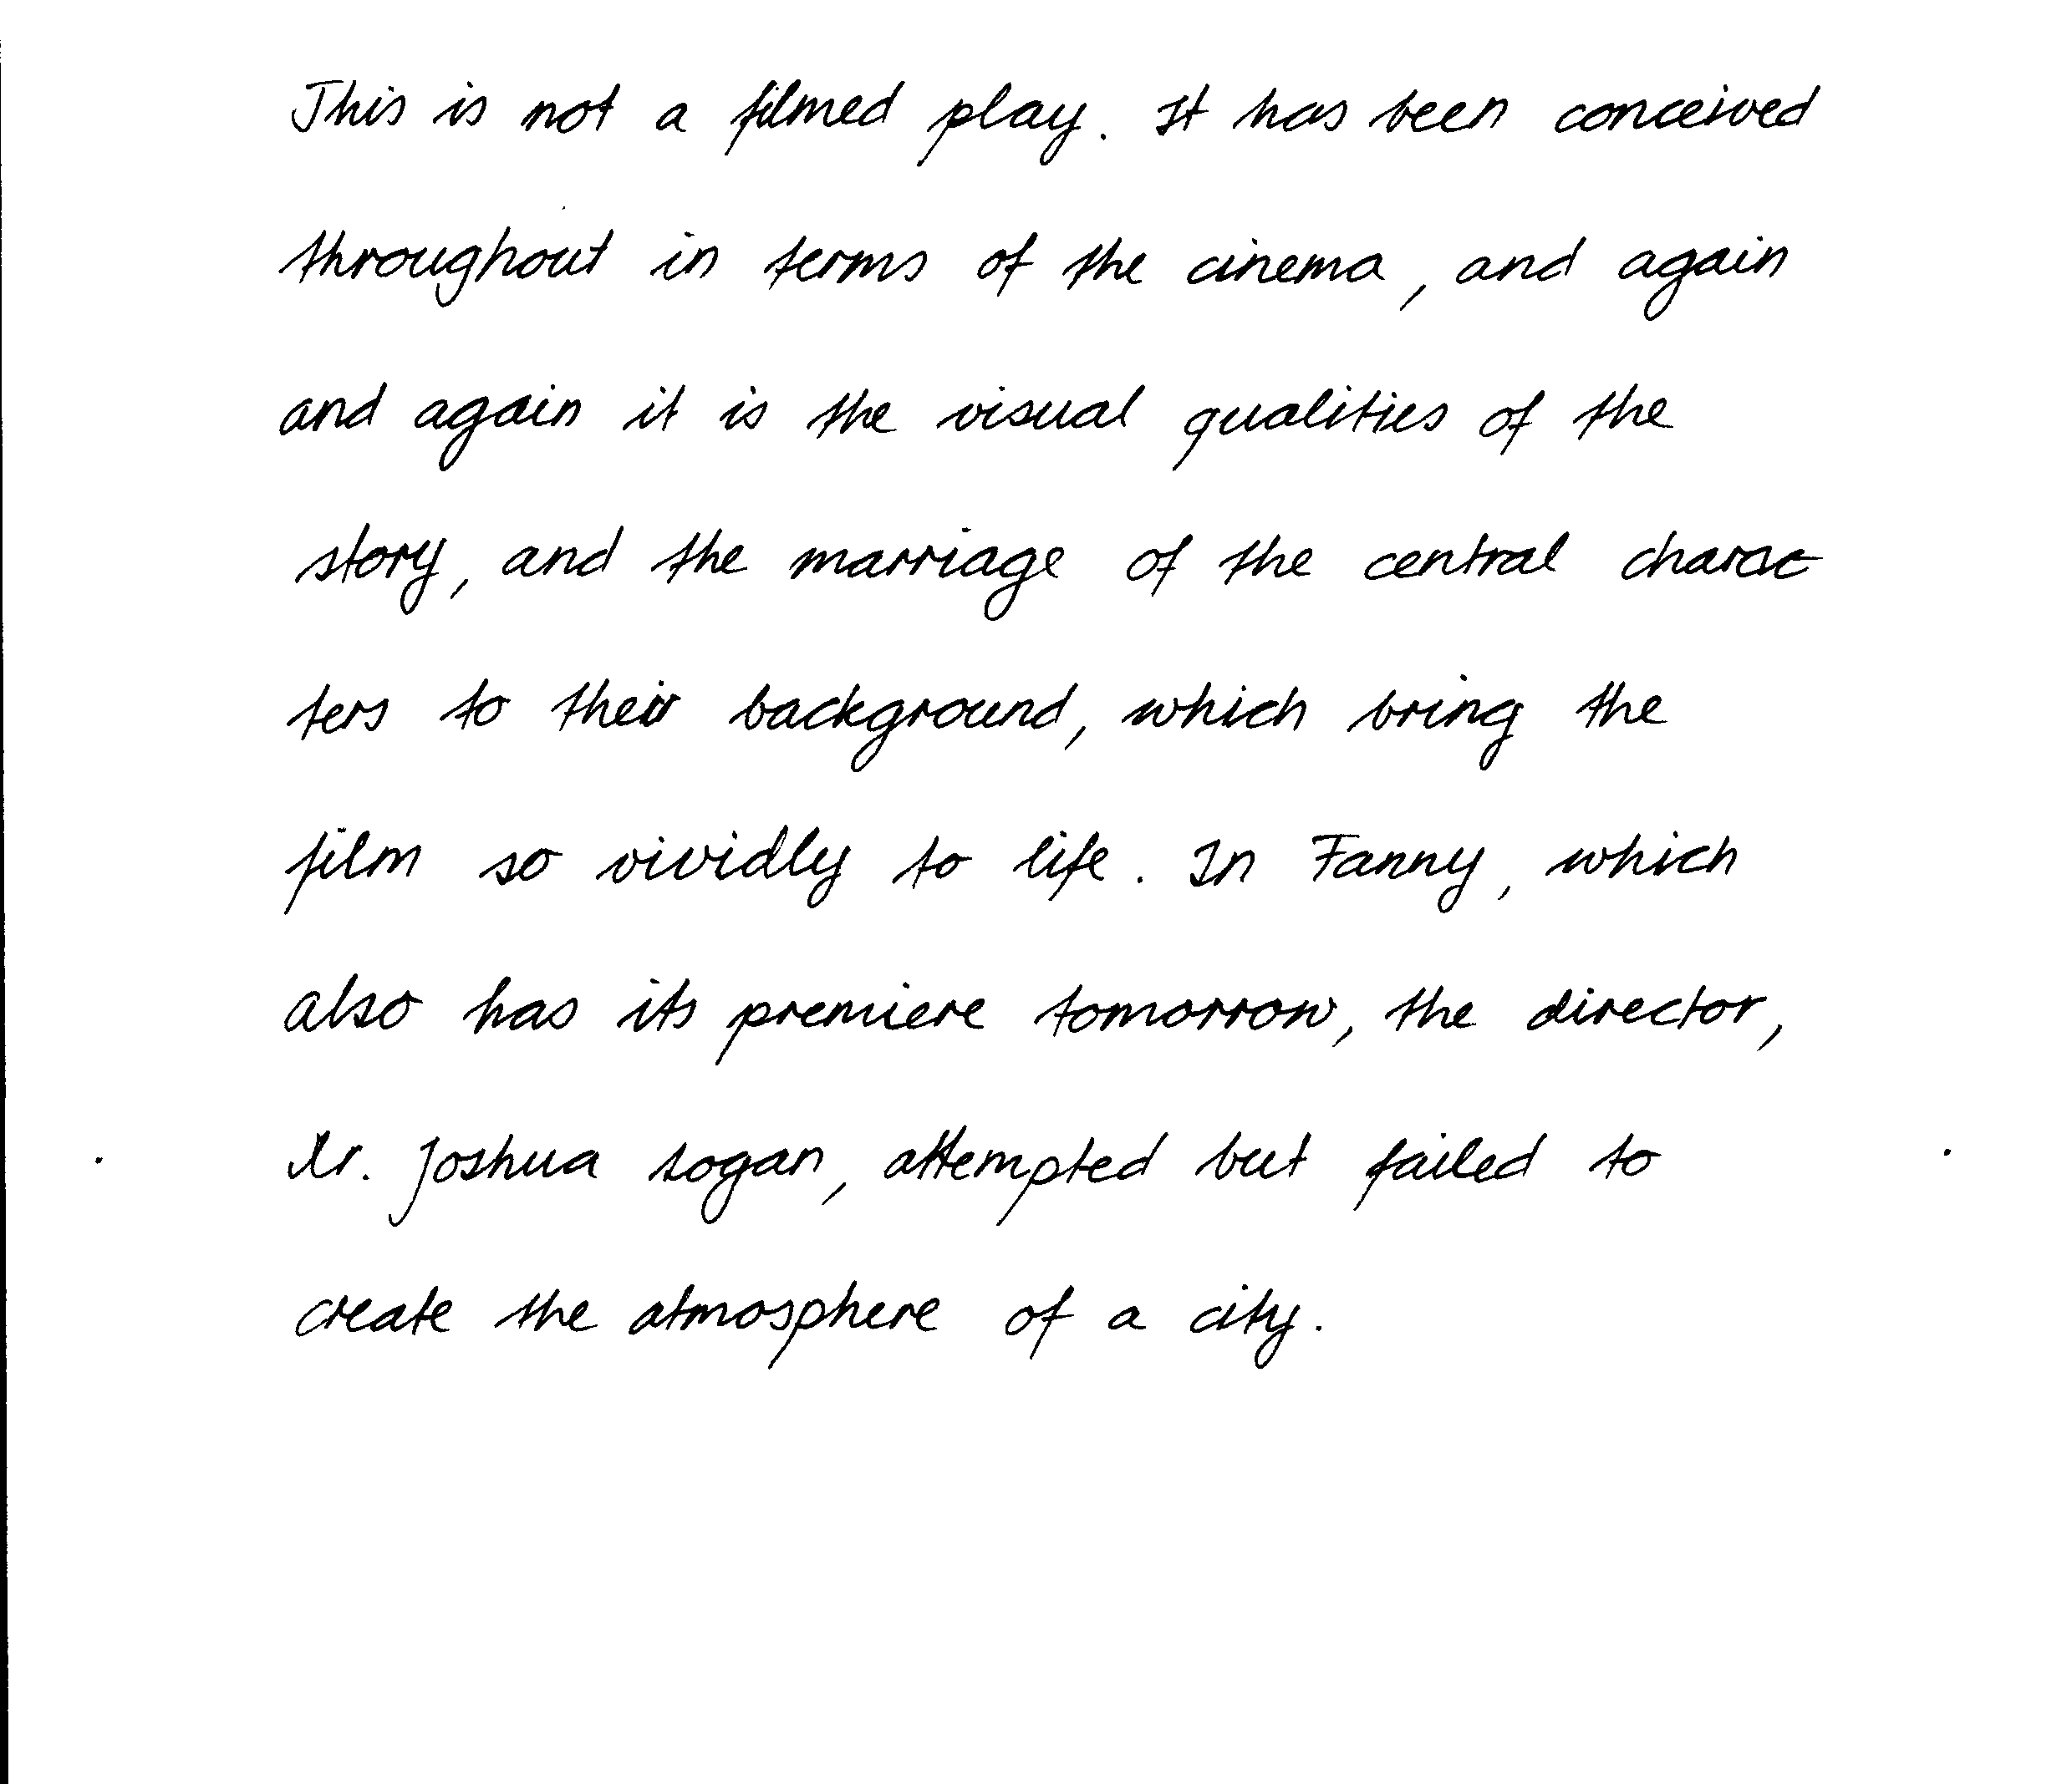 This is not a filmed play. It has been conceived
throughout in terms of the cinema, and again
and again it is the visual qualities of the
story, and the marriage of the central charac
ters to their background, which bring the
film so vividly to life. In Fanny, which
also has its premiere tomorrow, the director,
Mr. Joshua Logan, attempted but failed to
create the atmosphere of a city.